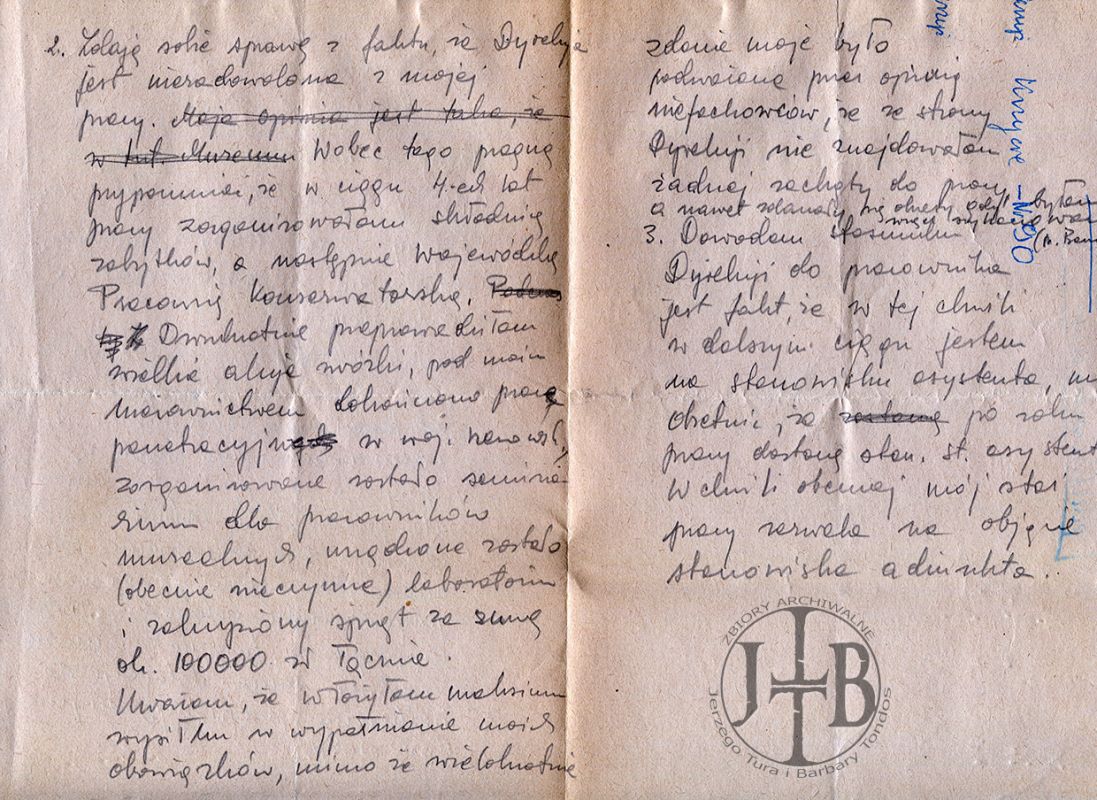 2. Zdaję sobie sprawę z faktu, że Dyrekcja
jest niezadowolona z mojej
pracy. Moja opinia jest taka, że
w tut. Muzeum Wobec tego pragnę
przypomnieć, że w ciągu 4-ech lat
pracy zorganizowałam składnicę
zabytków, a następnie Wojewódzką
Pracownię Konserwatorską.
Dwukrotnie przeprowadziłam
wielkie akcje zwózki, pod moim
kierownictwem dokończono pracę
penetracyjną w woj. rzeszowsk.,
zorganizowane zostało semina-
rium dla pracowników
muzealnych, urządzone zostało
(obecnie nieczynne) laboratorium
i zakupiony sprzęt za sumę
ok. 100000 zł łącznie.
Uważam, że włożyłam maksimum
wysiłku w wypełnianie moich
obowiązków, mimo że wielokrotnie
zdanie moje było
podważane przez opinię
niefachowców, że ze strony
Dyrekcji nie znajdowałam
żadnej zachęty do pracy
a nawet zdarzały się okresy gdy byłam
3. Dowodem stosunku
Dyrekcji do pracownika
jest fakt, że w tej chwili
w dalszym ciągu jestem
na stanowisku asystenta, mimo
obietnic, że zostanę po roku
pracy dostanę stan. st. asystenta
W chwili obecnej mój staż
pracy zezwala na objęcie
stanowiska adiunkta.
ZBIORY ARCHIWALNE
JTB
Jerzego Tura i Barbary Tondos